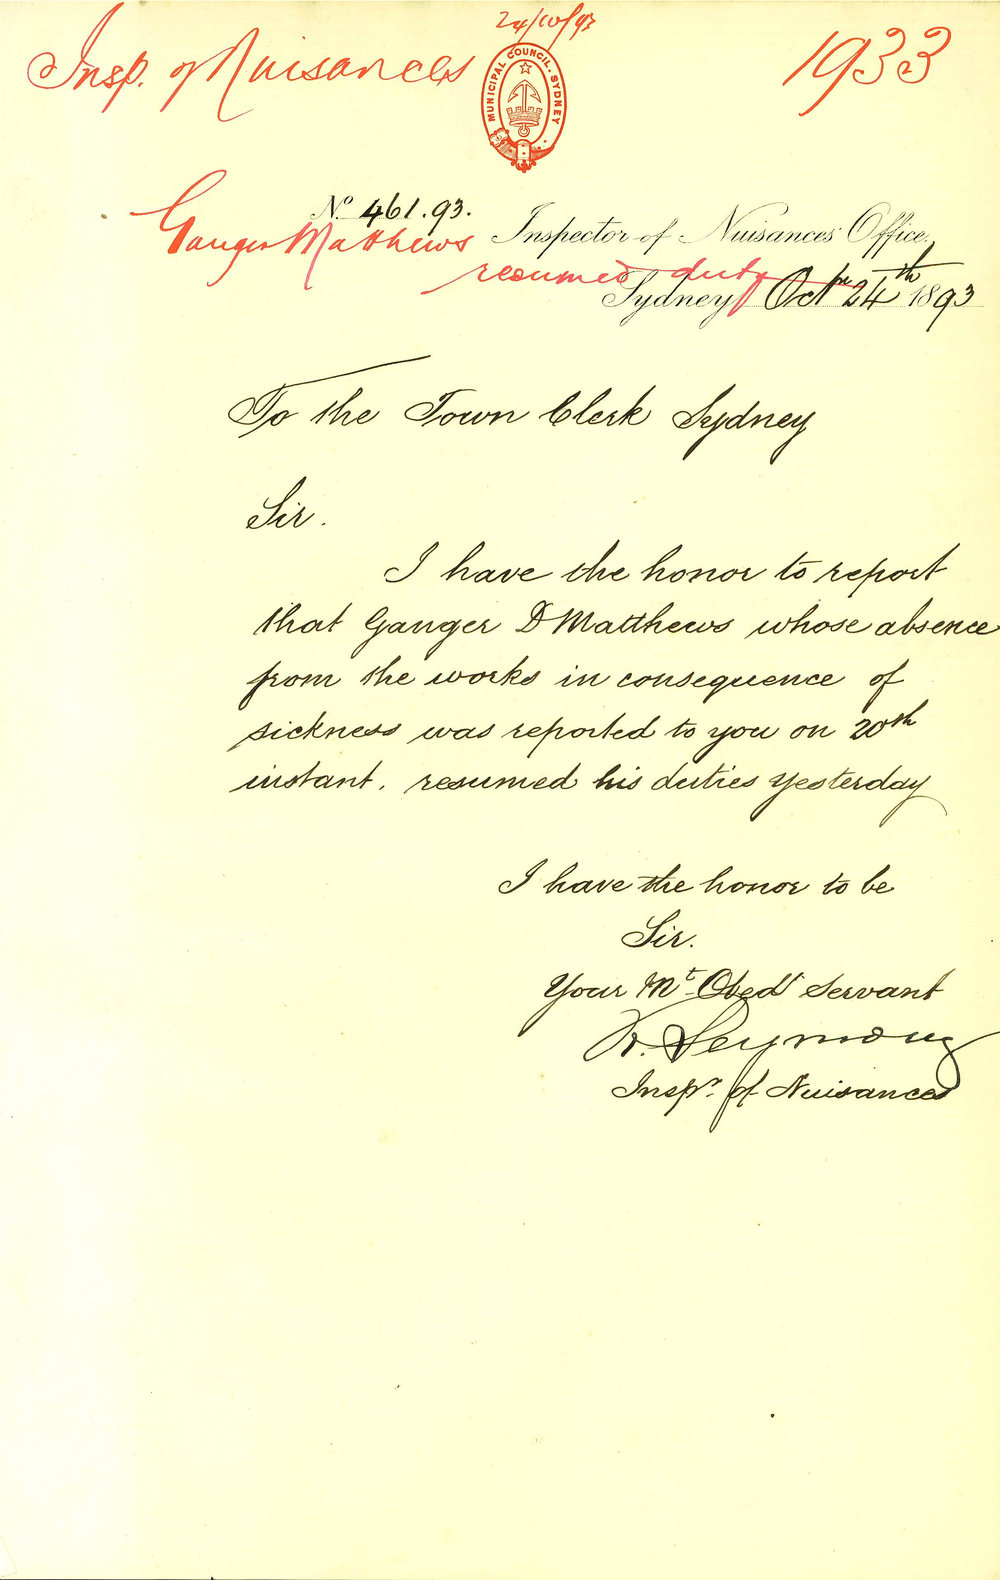 24/10/93
Insp. of Nuisances
1933
MUNICIPAL COUNCIL. SYDNEY
No. 461.93.
Ganger Matthews
resumed duty
Inspector of Nuisances' Office,
Sydney Octr 24th 1893
To the Town Clerk Sydney
Sir.
I have the honor to report
that Ganger D Matthews whose absence
from the works in consequence of
sickness was reported to you on 20th
instant. resumed his duties yesterday
I have the honor to be
Sir.
Your Mt Obedt Servant
R. Seymour
Inspr. of Nuisances